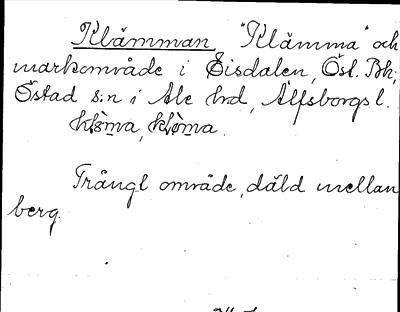 Klämman "Klämma" och
markområde i Sisdalen, Öst. Bh;
Östad s:n i Ale hd, Älfsborgs l.
klòma, klòma.
Trångt område, däld mellan
berg.